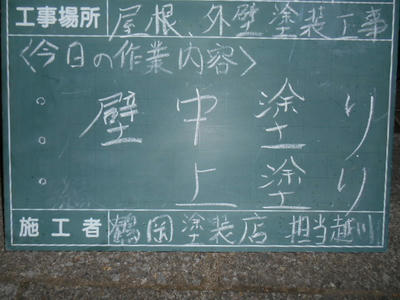 工事場所 屋根、外壁塗装工事
〈今日の作業内容〉
。 壁 中 塗り
。 上 塗り
。
施工者 鶴岡塗装店 担当越川